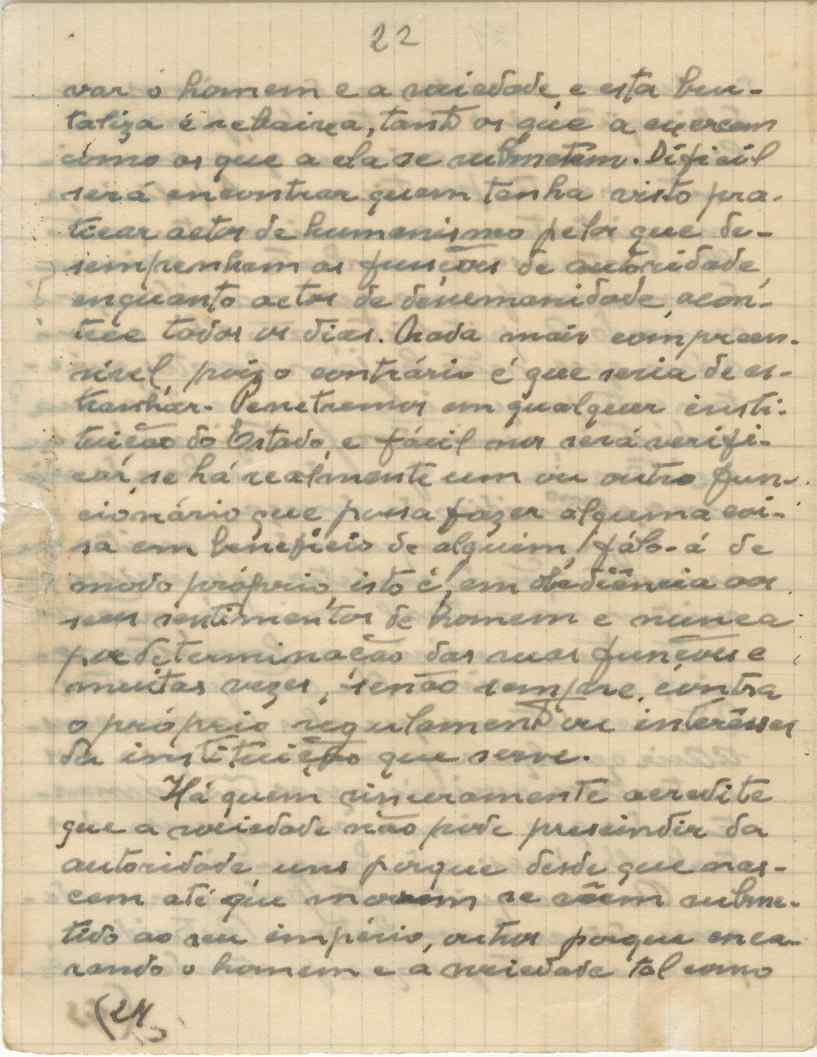 22
var o homem e a sociedade e esta bru-
taliza e rebaixa, tanto os que a exercem
como os que a ela se submetem. Dificil
será encontrar quem tenha visto pra-
ticar actos de humanismo pelos que de-
sempenham as funções de autoridade,
enquanto actos de desumanidade, acon-
tece todos os dias. Nada mais compreen-
sivel, pois o contrário é que seria de es-
tranhar. Penetremos em qualquer insti-
tuição do Estado, e fácil nos será verifi-
car, se há realmente um ou outro fun-
cionário que possa fazer alguma coi-
sa em beneficio de alguém, fálo-á de
modo próprio, isto é, em obediência aos
seus sentimentos de homem e nunca
por determinação das suas funções e
muitas vezes, senão sempre, contra
o próprio regulamento ou interêsses
da instituição que serve.
Há quem sinceramente acredite
que a sociedade não pode prescindir da
autoridade uns porque desde que nas-
cem até que morrem se vêem subme-
tido ao seu império, outros porque enca-
rando o homem e a sociedade tal como
(24